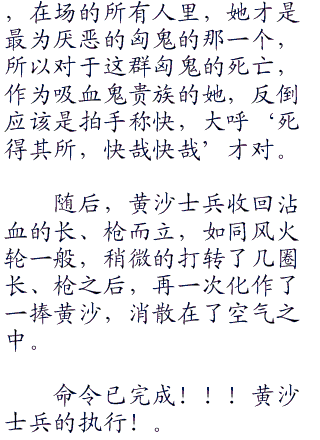 ，在场的所有人里，她才是
最为厌恶的匈鬼的那一个，
所以对于这群匈鬼的死亡，
作为吸血鬼贵族的她，反倒
应该是拍手称快，大呼‘死
得其所，快哉快哉’才对。
随后，黄沙士兵收回沾
血的长、枪而立，如同风火
轮一般，稍微的打转了几圈
长、枪之后，再一次化作了
一捧黄沙，消散在了空气之
中。
命令已完成！！！黄沙
士兵的执行！。